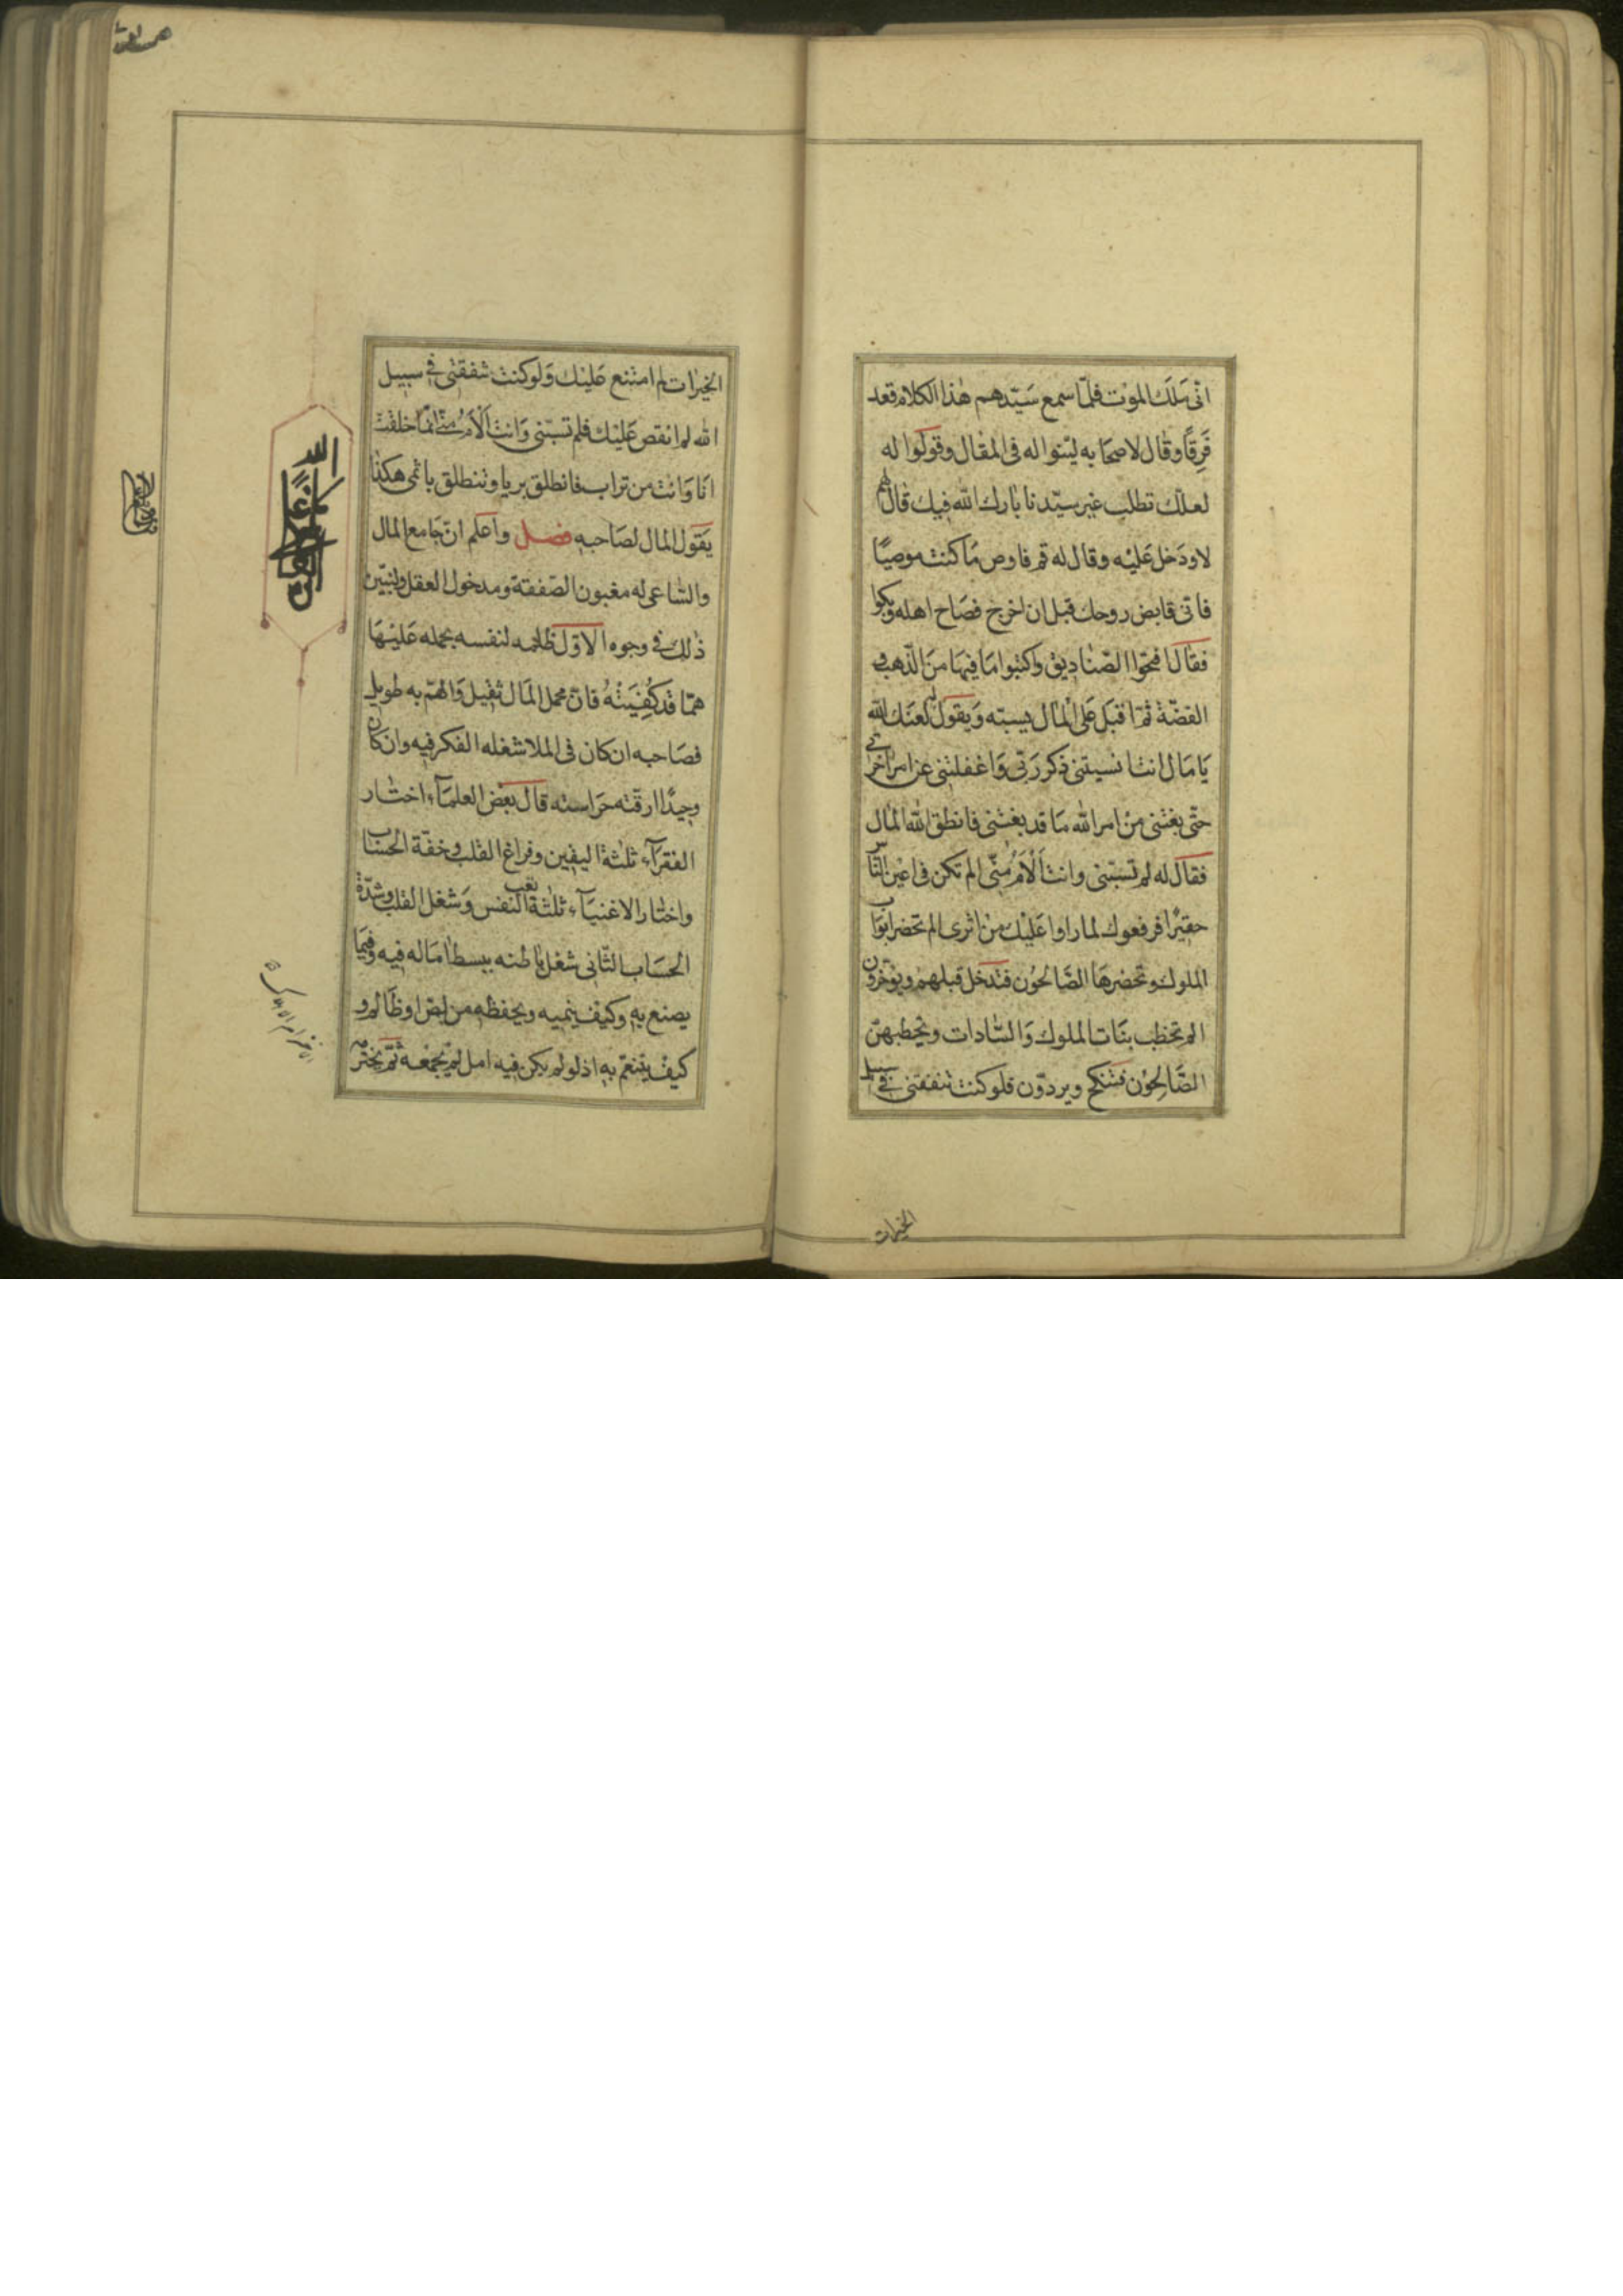 انّى مَلَك الموْت فلمّا سمع سَيّدهم هٰذا الكلام قعد
فَرِقًا وقال لاصحابه ليّنوا له فى المقال وقولوا له
لعلّك تطلب غير سيّدنا بارك الله فيك قال لهم
لا ودَخل عَليْه وقال له قم فاوص مَا كنت موصيًا
فانّى قابض روحك قبل ان اخرج فصَاح اهله وبكوا
فقال افتحوا الصّناديق واكتبوا مَا فيهَا منَ الذّهب و
الفضّة ثمّ اقبَل عَلى المال يسبّه وَيقول له لعنَك الله
يَا مَال انت انسيتنى ذكر رَبّى وَاغفلتنى عن امر اخرتى
حتّى بغتنى منْ امر الله مَا قد بغتنى فانطق الله المال
فقال له لم تسبّنى وانت اَلْأَمُ منّى الم تكن فى اعْين النّاس
حقيرًا فرفعوك لما راوا عَليْك من اثرى الم تحضر ابوَاب
الملوك وتحضرهَا الصَّالحُون فتدخل قبلهم ويؤخّرون
الم تخطب بنَات الملوك وَالسّادات ويخطبهنّ
الصَّالِحُون فتنكح ويردّون فلو كنت تنفقنى فى سبيل
الخيرات
الخيرات لم امتنع عَليْك وَلو كنت تنفقنى فى سبيل
الله لم انقص عَليْك فلم تسبّنى وَانت اَلْأَمُ منّى انّمَا خلقت
انَا وَانت من تراب فانطلق بريا وتنطلق باثمى هكذا
يَقول المال لصَاحبه فصل واعلم انّ جَامع المال
والسّاعى له مغبون الصّفقة ومدخول العقل ولنبيّن
ذٰلك فى وجوه الاوّل ظلمه لنفسه بحمله عَليْهَا
همّا قَد كُفِيَتْهُ فانّ محمل المَال ثقيل وَالهمّ به طويل
فصَاحبه ان كان فى الملا شغله الفكر فيه وان كان
وحيدًا ارّقته حَراسته قال بعْض العلمَآء اختار
الفقرَآء ثلثة اليقين وفراغ القلب وخفّة الحسَاب
واختار الاغنيَآء ثلثة تعب النفس وَشغل القلب وشدّة
الحسَاب الثّانى شغل باطنه ببسط امَاله فيه وفيمَا
يصنع به وكيْف ينميه ويحفظه من لصّ او ظَالم و
كيْف يتنعّم به اذ لو لم يكن فيه امل لم يجمعه ثمّ يخترم